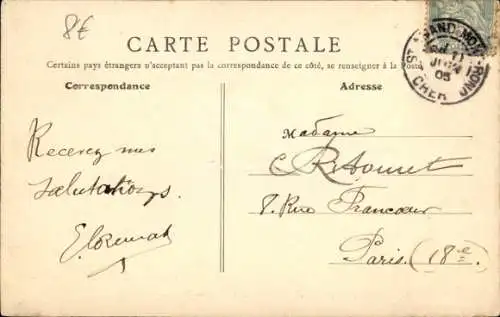 8€
CARTE POSTALE
Certains pays étrangers n'acceptant pas la correspondance de ce côté, se renseigner à la Poste
Correspondance
Adresse
ST AMAND-MONT-ROND
11
JUIN
05
CHER
Recevez mes
salutations.
Madame
8. Rue Francoeur
Paris. (18e)